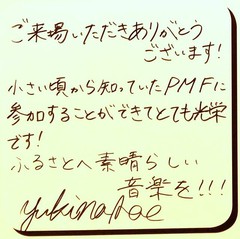 ご来場いただきありがとう
ございます!
小さい頃から知っていたPMFに
参加することができてとても光栄
です!
ふるさとへ素晴らしい
音楽を!!!